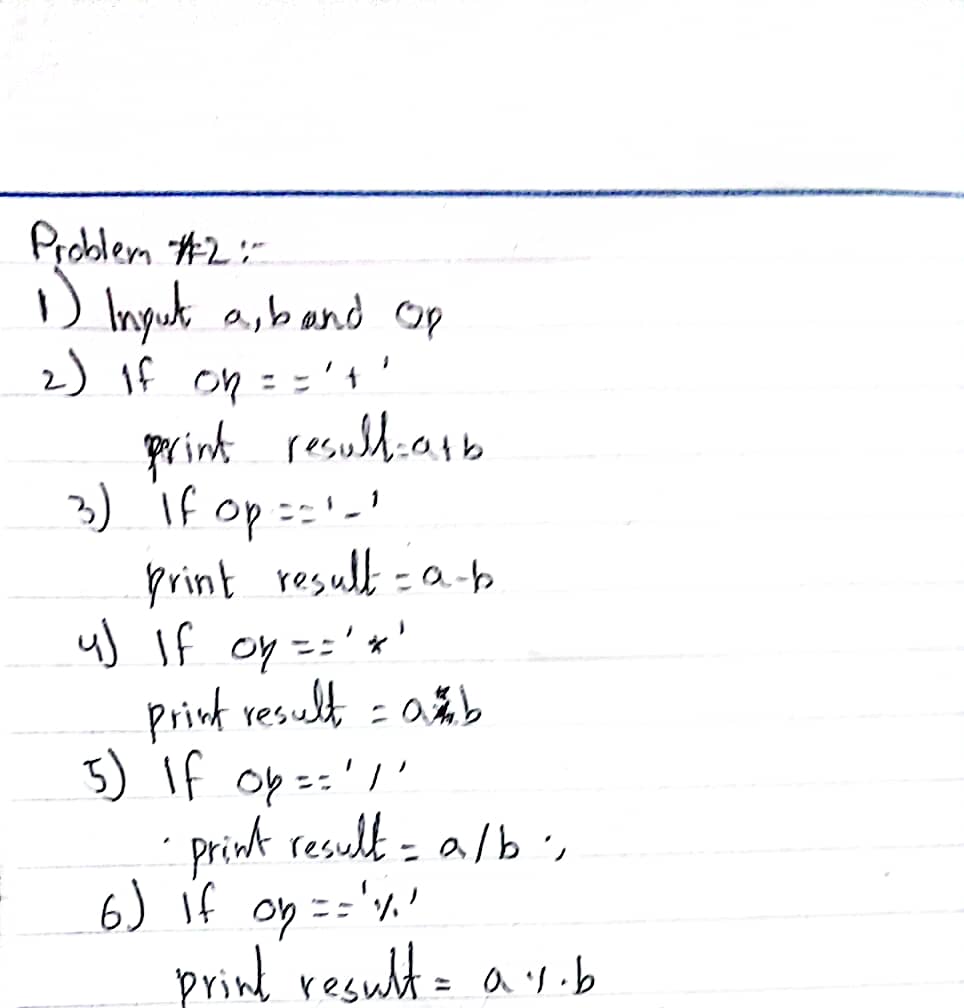 Problem #2 :-
1) Input a, b and op
2) If op == '+'
print result = a+b
3) If op == '-'
print result = a-b
4) If op == '*'
print result = a*b
5) If op == '/'
print result = a/b ;
6) If op == '%'
print result = a % b